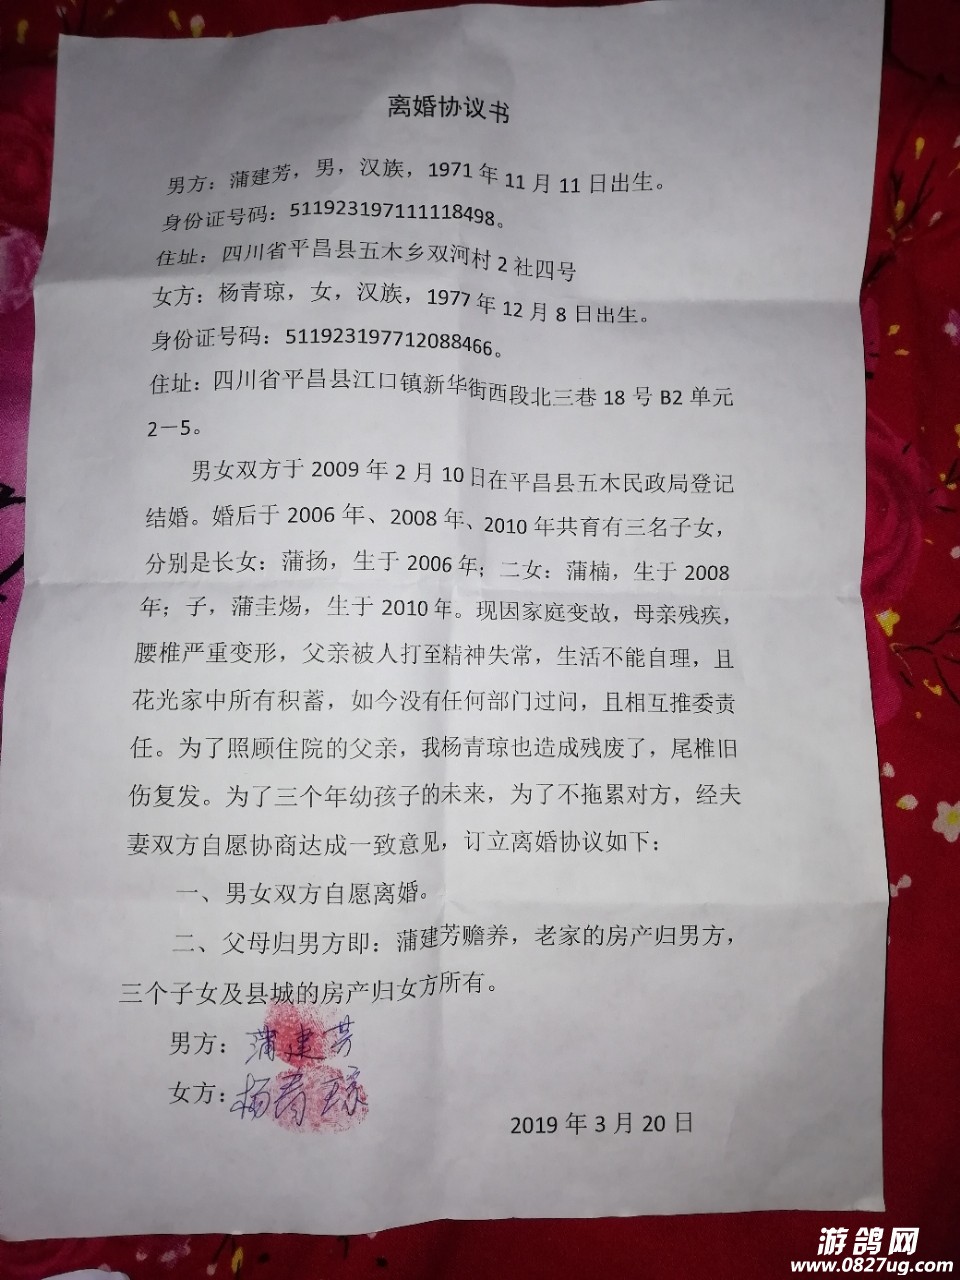 离婚协议书
男方：蒲建芳，男，汉族，1971年11月11日出生。
身份证号码：511923197111118498。
住址：四川省平昌县五木乡双河村2社四号
女方：杨青琼，女，汉族，1977年12月8日出生。
身份证号码：511923197712088466。
住址：四川省平昌县江口镇新华街西段北三巷18号B2单元
2－5。
男女双方于2009年2月10日在平昌县五木民政局登记
结婚。婚后于2006年、2008年、2010年共育有三名子女，
分别是长女：蒲扬，生于2006年；二女：蒲楠，生于2008
年；子，蒲圭煬，生于2010年。现因家庭变故，母亲残疾，
腰椎严重变形，父亲被人打至精神失常，生活不能自理，且
花光家中所有积蓄，如今没有任何部门过问，且相互推委责
任。为了照顾住院的父亲，我杨青琼也造成残废了，尾椎旧
伤复发。为了三个年幼孩子的未来，为了不拖累对方，经夫
妻双方自愿协商达成一致意见，订立离婚协议如下：
一、男女双方自愿离婚。
二、父母归男方即：蒲建芳赡养，老家的房产归男方，
三个子女及县城的房产归女方所有。
男方：蒲建芳
女方：杨青琼
2019年3月20日
游鸽网
www.0827ug.com